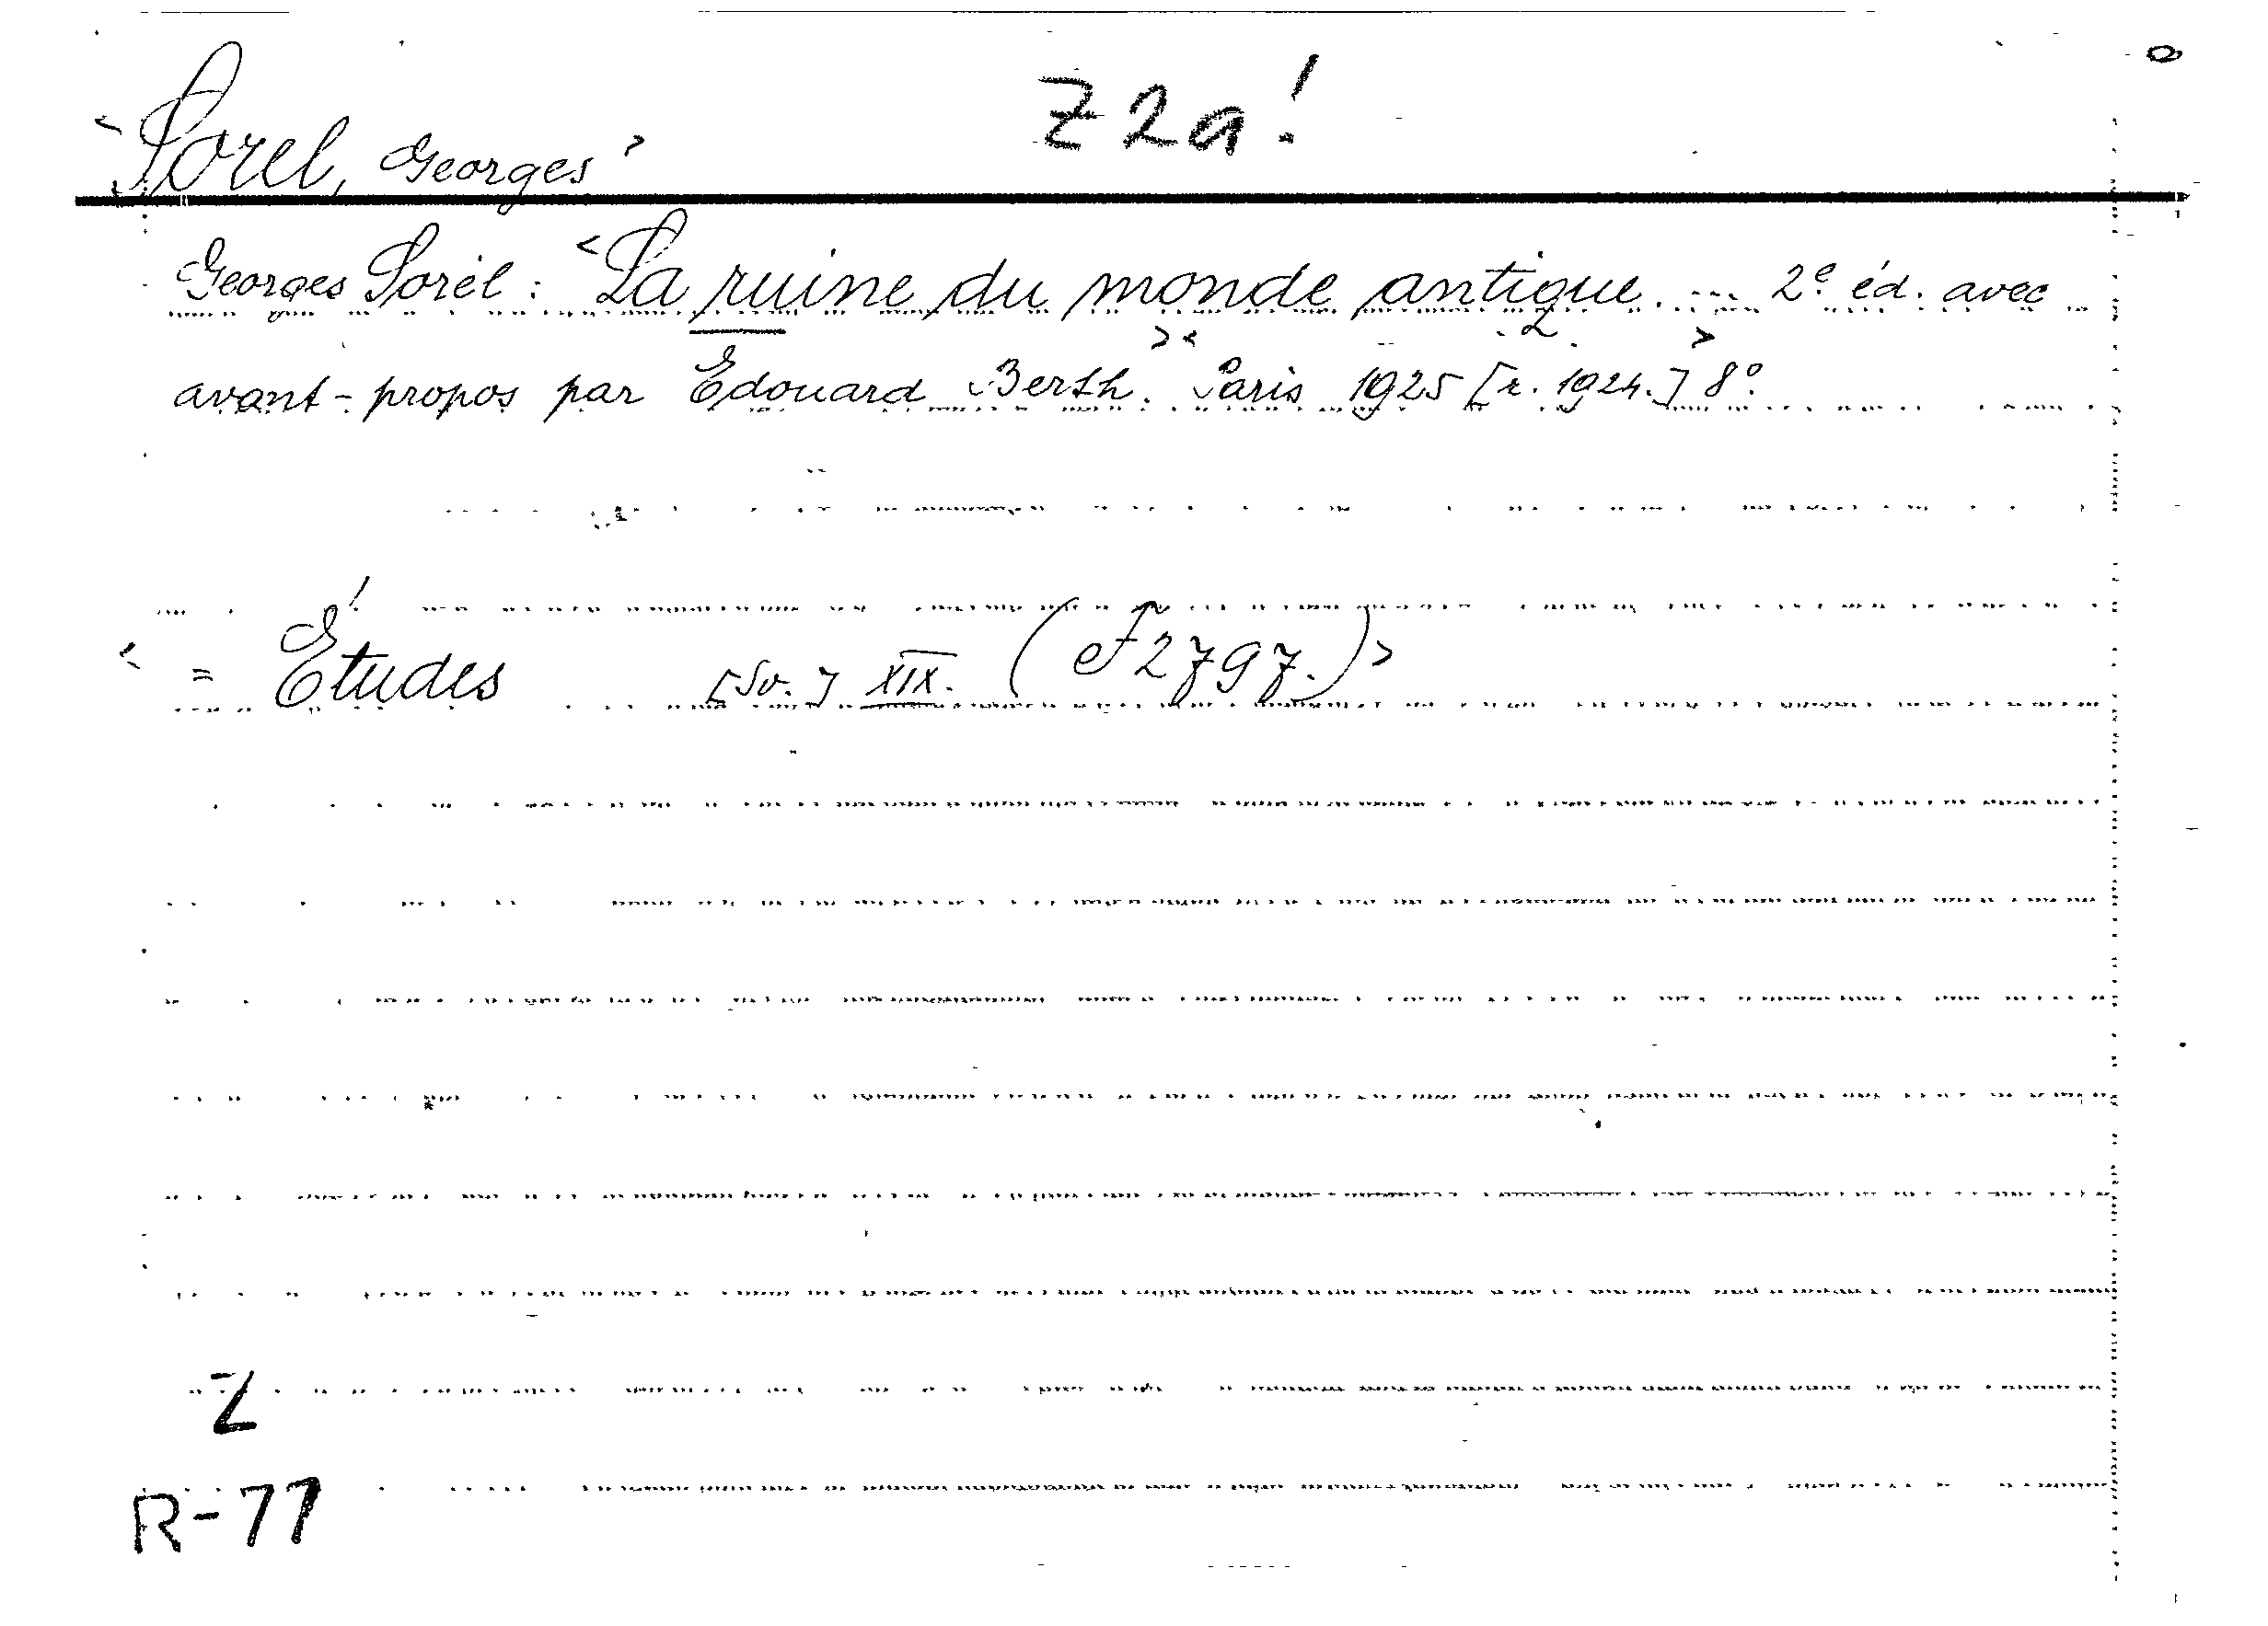 Z2a!
<Sorel, Georges>
Georges Sorel: <La ruine du monde antique. ... 2e éd. avec
avant-propos par Édouard Berth.>< Paris 1925 [r. 1924.] 8°.
< = Études [Sv.] XIX. (ef 2797.)>
Z
R-77